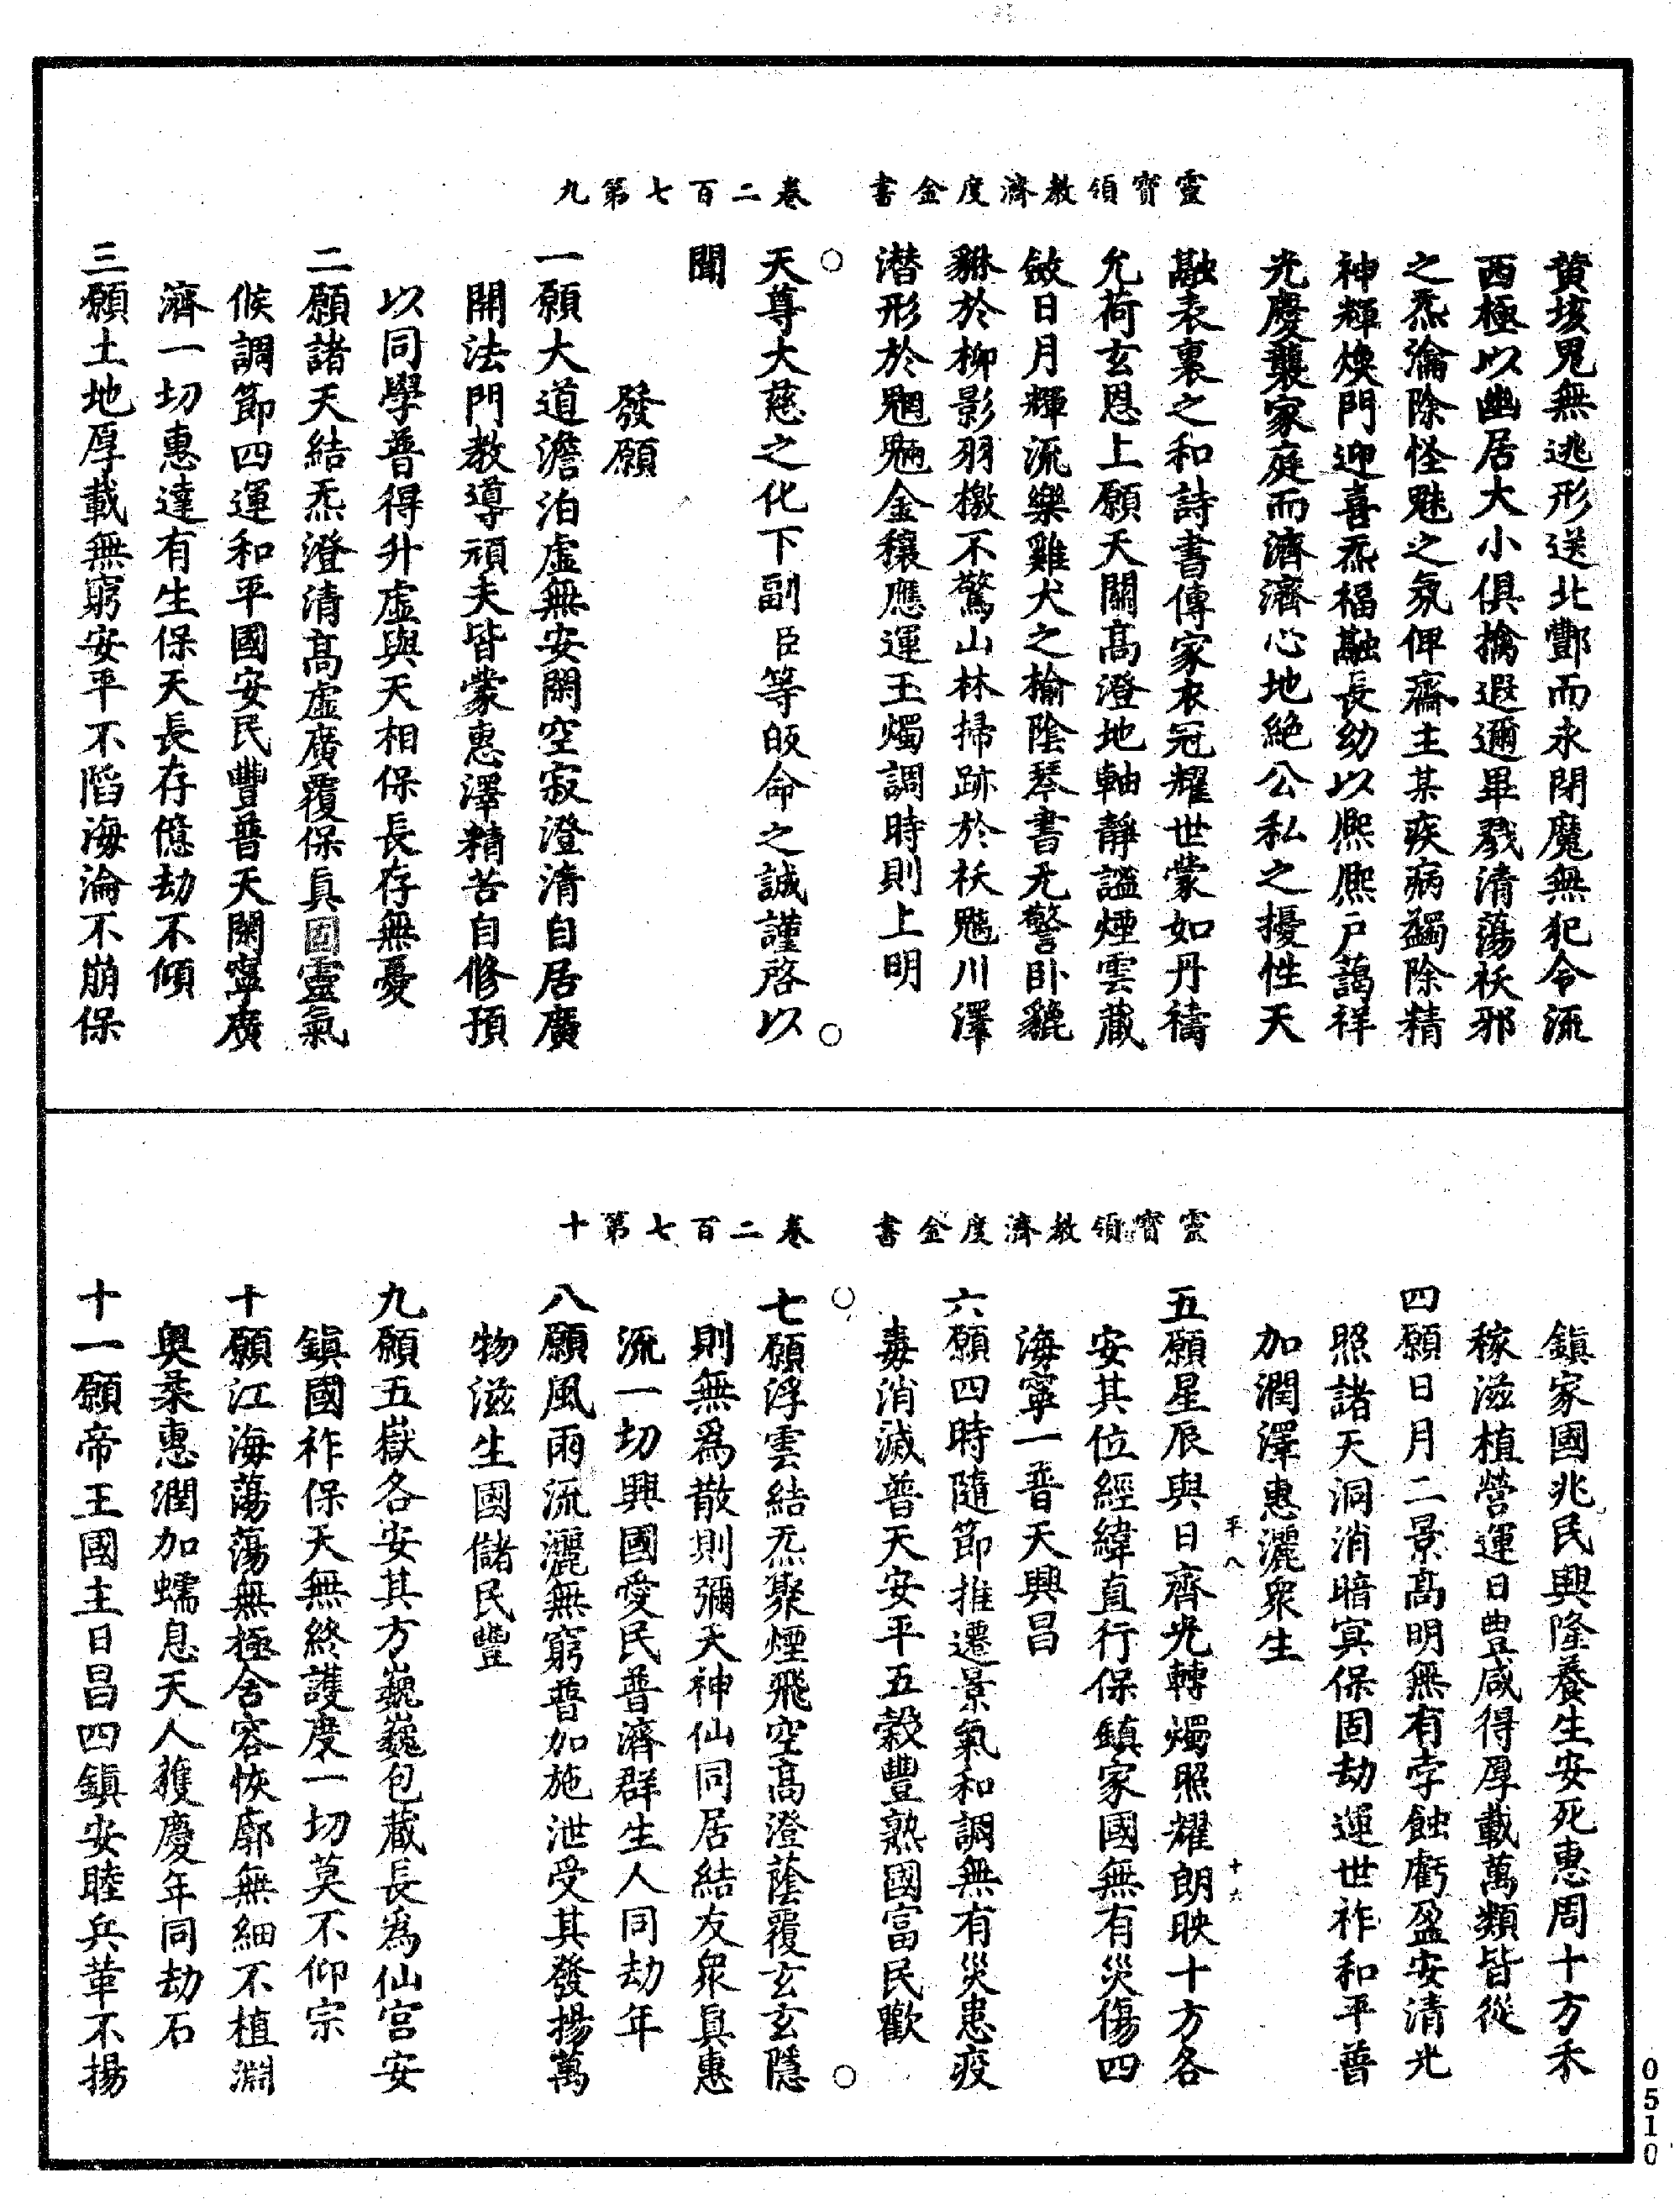 靈寶領教濟度金書　卷二百七第九
黄垓鬼無逃形送北酆而永閉魔無犯令流
西極以幽居大小俱擒遐邇畢戮清蕩祅邪
之炁淪除怪魅之氛俾齋主某疾病蠲除精
神輝煥門迎喜炁福融長幼以熈熈戸藹祥
光慶襲家庭而濟濟心地絶公私之擾性天
融表裏之和詩書傳家衣冠耀世蒙如丹禱
允荷玄恩上願天關髙澄地軸靜謐煙雲藏
斂日月輝流樂雞犬之榆陰琴書尤警卧貔
貅於柳影羽檄不驚山林掃跡於祅魑川澤
潜形於魍魎金穰應運玉燭調時則上明
○
天尊大慈之化下副臣等皈命之誠謹啓以
聞
發願
一願大道澹泊虛無安閑空寂澄清自居廣
開法門教導頑夫皆蒙惠澤精苦自修預
以同學普得升虛與天相保長存無憂
二願諸天結炁澄清髙虛廣覆保眞固靈氣
候調節四運和平國安民豐普天閑寧廣
濟一切惠達有生保天長存億劫不傾
三願土地厚載無窮安平不陷海淪不崩保
靈寶領教濟度金書　卷二百七第十
鎮家國兆民興隆養生安死惠周十方禾
稼滋植營運日豊咸得厚載萬類皆從
四願日月二景髙明無有孛蝕虧盈安清光
照諸天洞消暗冥保固劫運世祚和平普
加潤澤惠灑衆生
平八　十六
五願星辰與日齊光轉燭照耀朗映十方各
安其位經緯直行保鎮家國無有災傷四
海寧一普天興昌
六願四時隨節推遷景氣和調無有災患疫
毒消滅普天安平五榖豐熟國富民歡
○
七願浮雲結炁聚煙飛空高澄蔭覆玄玄隱
則無爲散則彌天神仙同居結友衆眞惠
流一切興國愛民普濟群生人同劫年
八願風雨流灑無窮普加施泄受其發揚萬
物滋生國儲民豐
九願五嶽各安其方巍巍包藏長爲仙宫安
鎮國祚保天無終護度一切莫不仰宗
十願江海蕩蕩無極含容恢廓無細不植淵
奥柔惠潤加蠕息天人獲慶年同劫石
十一願帝王國主日昌四鎮安睦兵革不揚
0510